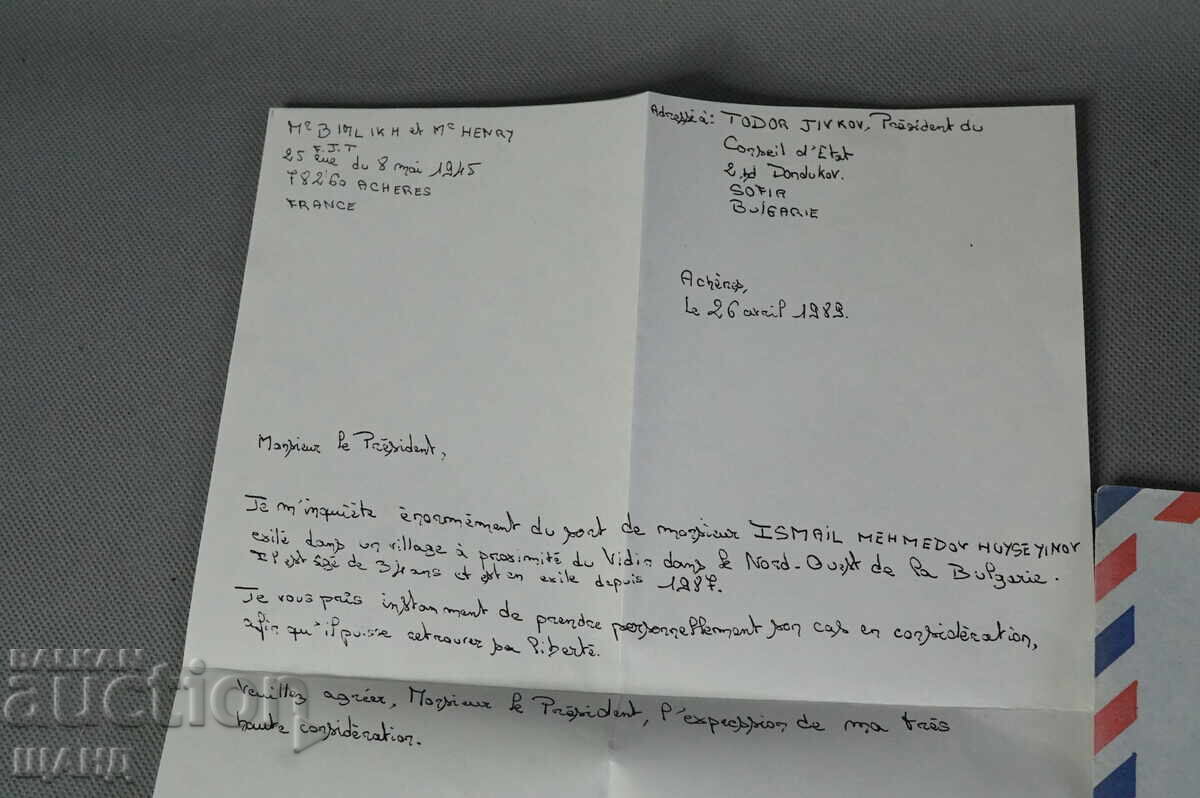 Mr BIMLIKH et Mr HENRY
F.J.T
25 rue du 8 mai 1945
78260 ACHERES
FRANCE
Adressé à: TODOR JIVKOV, Président du
Conseil d'Etat
2, bd Dondukov.
SOFIA
BULGARIE
Achères,
Le 26 avril 1989.
Monsieur le Président,
Je m'inquiète énormément du sort de monsieur ISMAIL MEHMEDOV HUYSEYINOV
exilé dans un village à proximité du Vidin dans le Nord-Ouest de la Bulgarie.
Il est âgé de ans et est en exile depuis 1987.
Je vous prie instamment de prendre personnellement son cas en considération,
afin qu'il puisse retrouver sa liberté.
Veuillez agréer, Monsieur le Président, l'expression de ma très
haute considération.
BALKAN
auction
ЩАНД